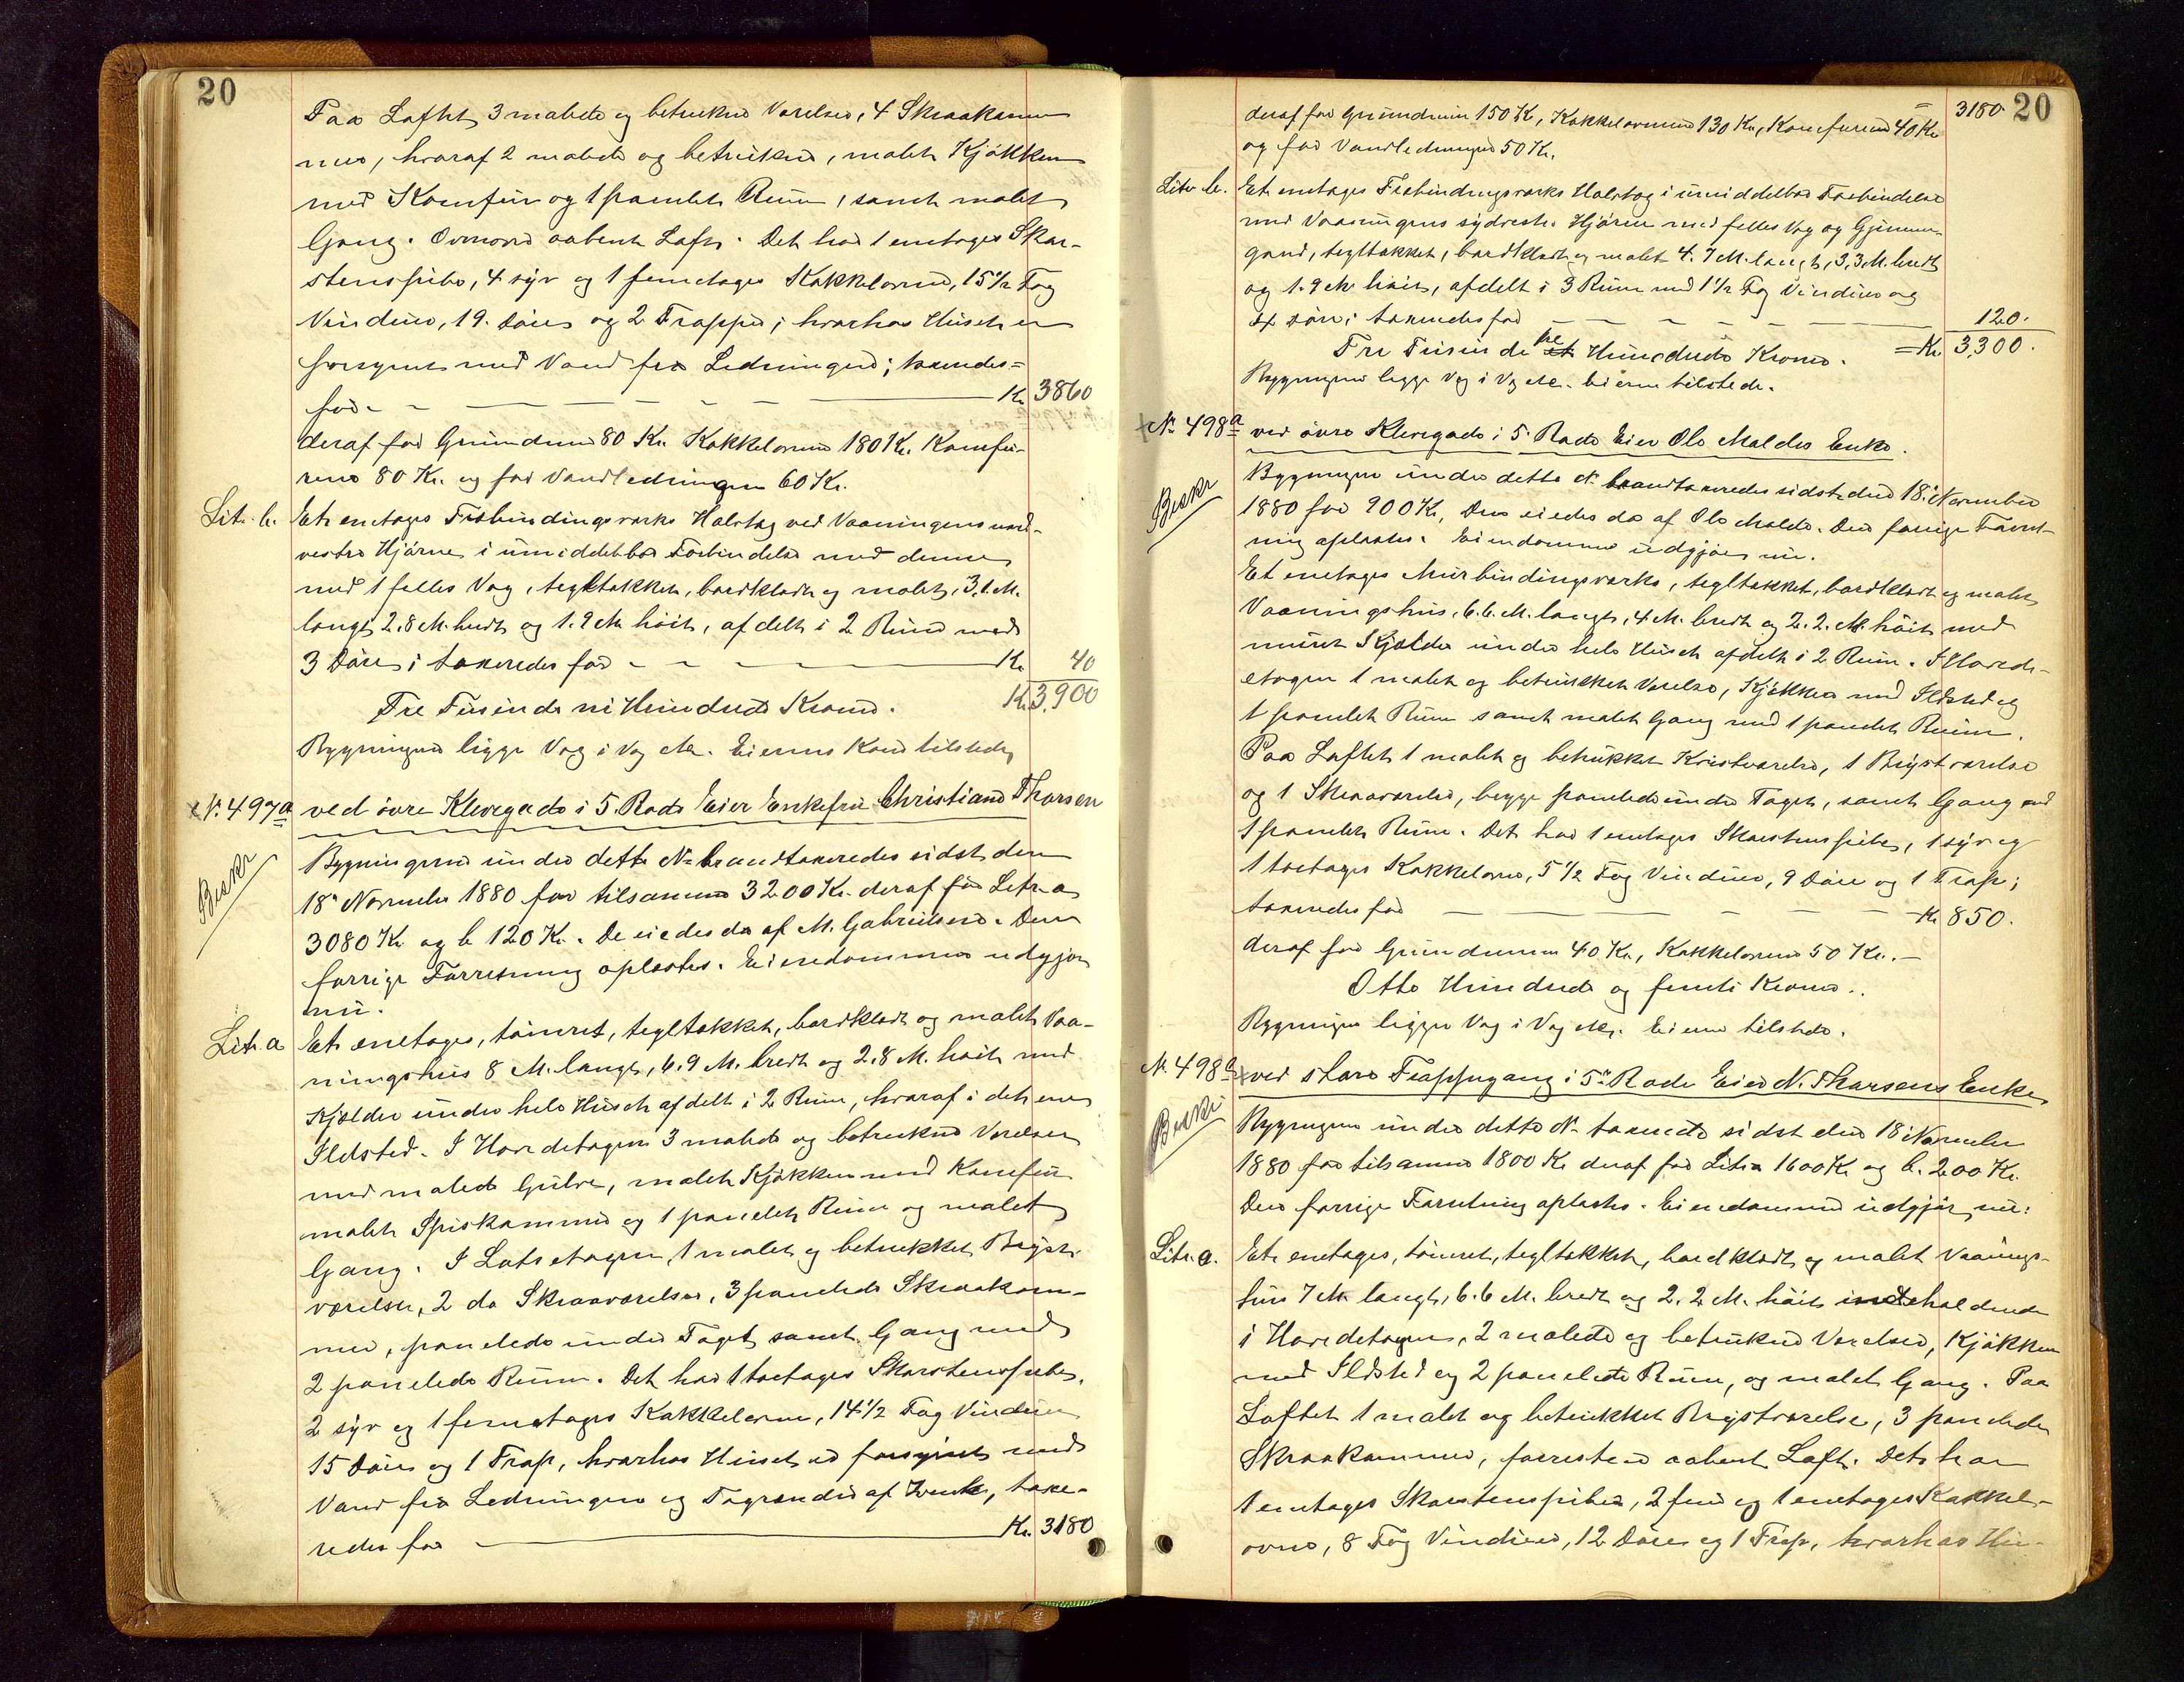 20
Paa Loftet 3 malede og betrukne Værelser, 4 Skraakam-
mer, hvoraf 2 malede og betrukne, malet Kjøkken
med Komfur og 1 panelet Rum, samt malet
Gang. Ovenover aabent Loft. Det har 1 enetages Skor-
stenspibe, 4 syv og 1 femetages Kakkelovne, 15 1/2 Fag
Vinduer, 19 Døre og 2 Trapper; hvorhos Huset er
forsynet med Vand fra Ledningen; taxeredes=
for - - Kr. 3860
deraf for Grundmur 80 Kr. Kakkelovne 180 Kr. Komfu-
rene 80 Kr. og for Vandledningen 60 Kr.
Litr. b. Et enetages Udbindingsværks Halvtag ved Vaaningens nord-
vestre Hjørne i umiddelbar Forbindelse med denne
med 1 fælles Væg, tegltækket, bordklædt og malet, 3,1 M.
langt 2.8 M. bredt og 1.9 M høit, afdelt i 2 Rum med
3 Døre; taxeredes for - - Kr. 40
Tre Tusinde ni Hundrede Kroner. Kr. 3,900
Bygningerne ligge Væg i Væg etc. Eierens Kone tilstede,
x N. 497a ved øvre Klevegade i 5. Rode Eier Enkefru Christiane Thorsen
Beskr
Bygningerne under dette No brandtaxeredes sidst den
18' November 1880 for tilsammen 3200 Kr. deraf for Litr. a
3080 Kr. og b 120 Kr. De eiedes da af M. Gabrielsen. Den
forrige Forretning oplæstes. Eiendommen udgjør
nu.
Litr. a Et enetages, tømret, tegltækket, bordklædt og malet Vaa-
ningshus 8 M. langt, 6.9 M. bredt og 2.8 M. høit med
Kjælder under hele Huset afdelt i 2 Rum, hvoraf i det ene
Ildsted. I Hovedetagen 3 malede og betrukne Værelser
med malede Gulve, malet Kjøkken med Komfur
malet Spiskammer og 1 panelet Rum og malet
Gang. I Loftsetagen 1 malet og betrukket Bryst-
værelse, 2 do Skraaværelser, 3 panelede Skraakam-
mer, panelede under Taget samt Gang med
2 panelede Rum. Det har 1 toetages Skorstenspibe,
2 syv og 1 femetages Kakkelovne, 14 1/2 Fag Vinduer
15 Døre og 1 Trap, hvorhos Huset er forsynet med
Vand fra Ledningen og Tagrender af Zink, taxe-
redes for - Kr. 3180
20
3180
deraf for Grundmur 150 Kr, Kakkelovnene 130 Kr, Komfuren 40 Kr
og for Vandledningen 50 Kr.
Litr b. Et enetages Udbindingsværks Halvtag i umiddelbar Forbindelse
med Vaaningens sydvestre Hjørne med fælles Væg og Gjennem-
gang, tegltækket, bordklædt og malet 4.7 M. langt, 3,3 M. bredt
og 1.9 M høit, afdelt i 3 Rum med 1 1/2 Fag Vinduer og
4 Døre; taxeredes for - 120.
Tre Tusinde tre Hundrede Kroner. = Kr. 3,300.
Bygningerne ligge Væg i Væg etc. Eieren tilstede.
x No 498a ved øvre Klevegade i 5. Rode Eier Ole Maldes Enke.
Beskr
Bygningen under dette No brandtaxeredes sidst den 18' November
1880 for 900 Kr, Den eiedes da af Ole Malde. Den forrige Forret-
ning oplæstes. Eiendommen udgjør nu.
Et enetages Murbindingsværks, tegltækket, bordklædt og malet
Vaaningshus, 6.6. M. langt, 4 M. bredt og 2.2. M. høit med
muret Kjælder under hele Huset afdelt i 2 Rum. I Hoved-
etagen 1 malet og betrukket Værelse, Kjøkken med Ildsted og
1 panelet Rum samt malet Gang med 1 panelet Rum.
Paa Loftet 1 malet og betrukket Kvistværelse, 1 Brystværelse
og 1 Skraaværelse, begge panelede under Taget, samt Gang med
1 panelet Rum. Det har 1 enetages Skorstenspibe, 1 syv og
1 toetages Kakkelovne, 5 1/2 Fag Vinduer, 9 Døre og 1 Trap;
taxeredes for - Kr. 850.
deraf for Grundmuren 40 Kr., Kakkelovnene 50 Kr. -
Otte Hundrede og femti Kroner.
Bygningen ligger Væg i Væg etc. Eieren tilstede.
N. 498b x ved store Trappegang i 5' Rode Eier N. Thorsens Enke
Beskr
Bygningen under dette No taxeredes sidst den 18' November
1880 for tilsammen 1800 Kr deraf for Litr. a 1600 Kr og b. 200 Kr.
Den forrige Forretning oplæstes. Eiendommen udgjør nu:
Litr. a. Et enetages, tømret, tegltækket, bordklædt og malet Vaanings-
hus 7 M langt, 6.6 M. bredt og 2.2 M. høit indeholdende
i Hovedetagen, 2 malede og betrukne Værelser, Kjøkken
med Ildsted og 2 panelede Rum, og malet Gang. Paa
Loftet 1 malet og betrukket Brystværelse, 3 panelede
Skraakammer, forresten aabent Loft. Det har
1 enetages Skorstenspibe, 2 fem og 1 enetages Kakkel-
ovne, 8 Fag Vinduer, 12 Døre og 1 Trap, hvorhos Hu-